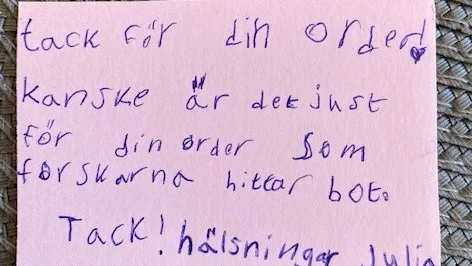 tack för din order!
kanske är det just
för din order som
forskarna hittar bot.
Tack! hälsningar Julia